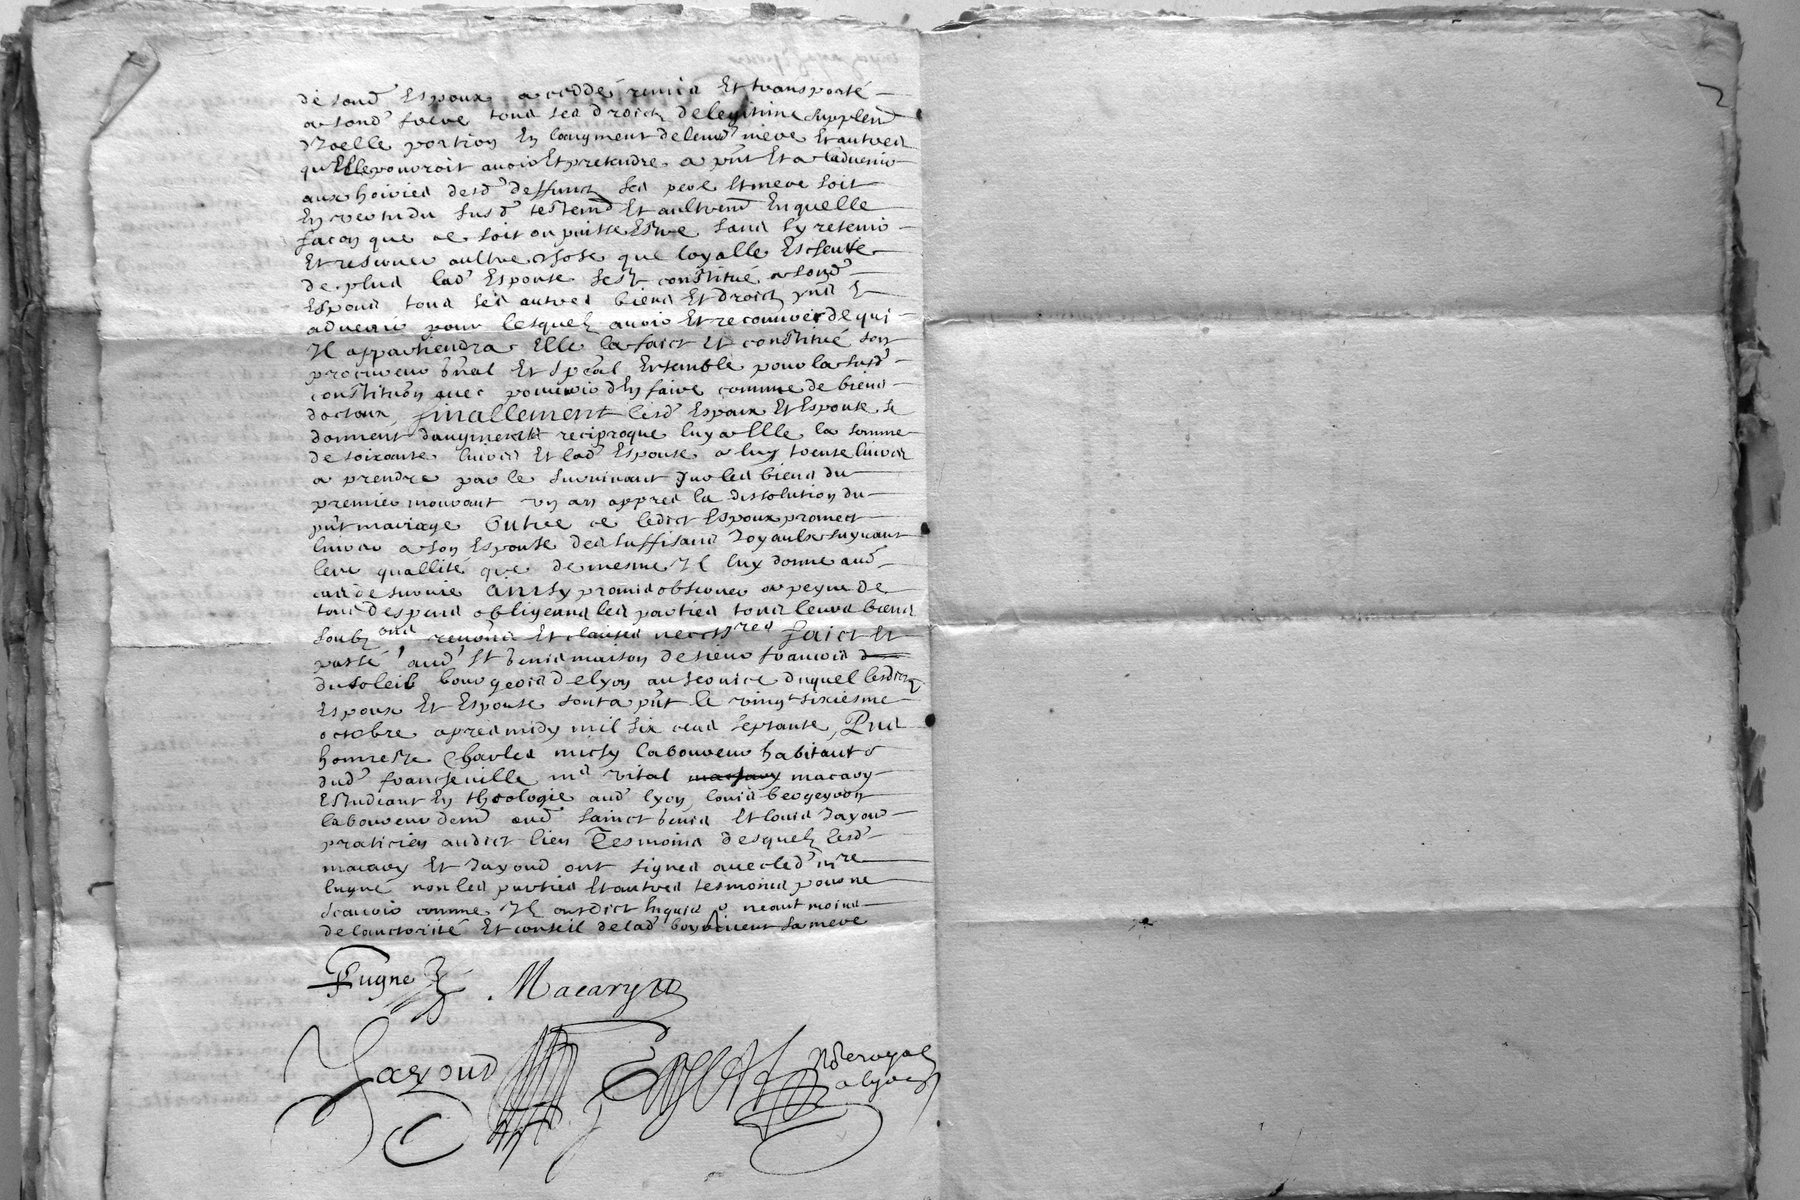 de sond' Espoux a ceddé remis Et transporté
a sond' frere tous ses droicts de legitime supplem'
d'Icelle portion En laugment de leurd' mere Et autres
qu'Elle pouvroit avoir Et pretendre a pnt Et a ladvenir
aux hoiries desd' deffunct ses pere Et mere soit
En vertu du susd' testemt Et aultremt En quelle
facon que ce soit ou puisse Estre sans sy retenir
Et reserver aultre chose que loyalle
de plus lad' Espouse sest constitué a sond'
Espoux tous ses autres biens Et droicts pnts Et
advenir pour lesquels avoir Et recouvrer de qui
Il appartiendra Elle la faict Et constitué son
procureur gnal Et spéal Ensemble pour la susd'
constituõn avec pouvoir d'En faire comme de biens
doctaux finallement lesd' Espoux Et Espouse se
donnent daugment reciproque luy a Elle la somme
de soixante livres Et lad' Espouse a luy trente livres
a prendre par le survivant sur les biens du
premier mourant un an appres la dissolution du
pnt mariage Outre ce ledict Espoux promect
livrer a son Espouse des suffisans Joyaulx suyvant
leur quallité que de mesme Il luy donne aud'
cas de survie Ainsy promis observer a peyne de
tous despens obligeans les parties tous leurs biens
soubs renõns Et clauses necessres faict Et
passé aud' St Genis maison de sieur francois
du soleil bourgeois de lyon au service duquel lesdicts
Espoux Et Espouse sont a pnt le vingt sixiesme
octobre apres midy mil six cens septante, Pns
honneste Charles michy laboureur habitant
dud' francheville me vital macary
Estudiant En theologie aud' lyon louis bergeyron
laboureur demt aud' sainct Genis Et louis Jayoud
praticien audict lieu Tesmoins desquels lesd'
macary Et Jayoud ont signés avec led' nre
Eugne non les parties Et autres tesmoins pour ne
scavoir comme Ils ont dict Enquis neantmoins
de lauctorité Et conseil de lad' sa mere
Pugne
Macary
Jayoud
Nre royal
a lyon